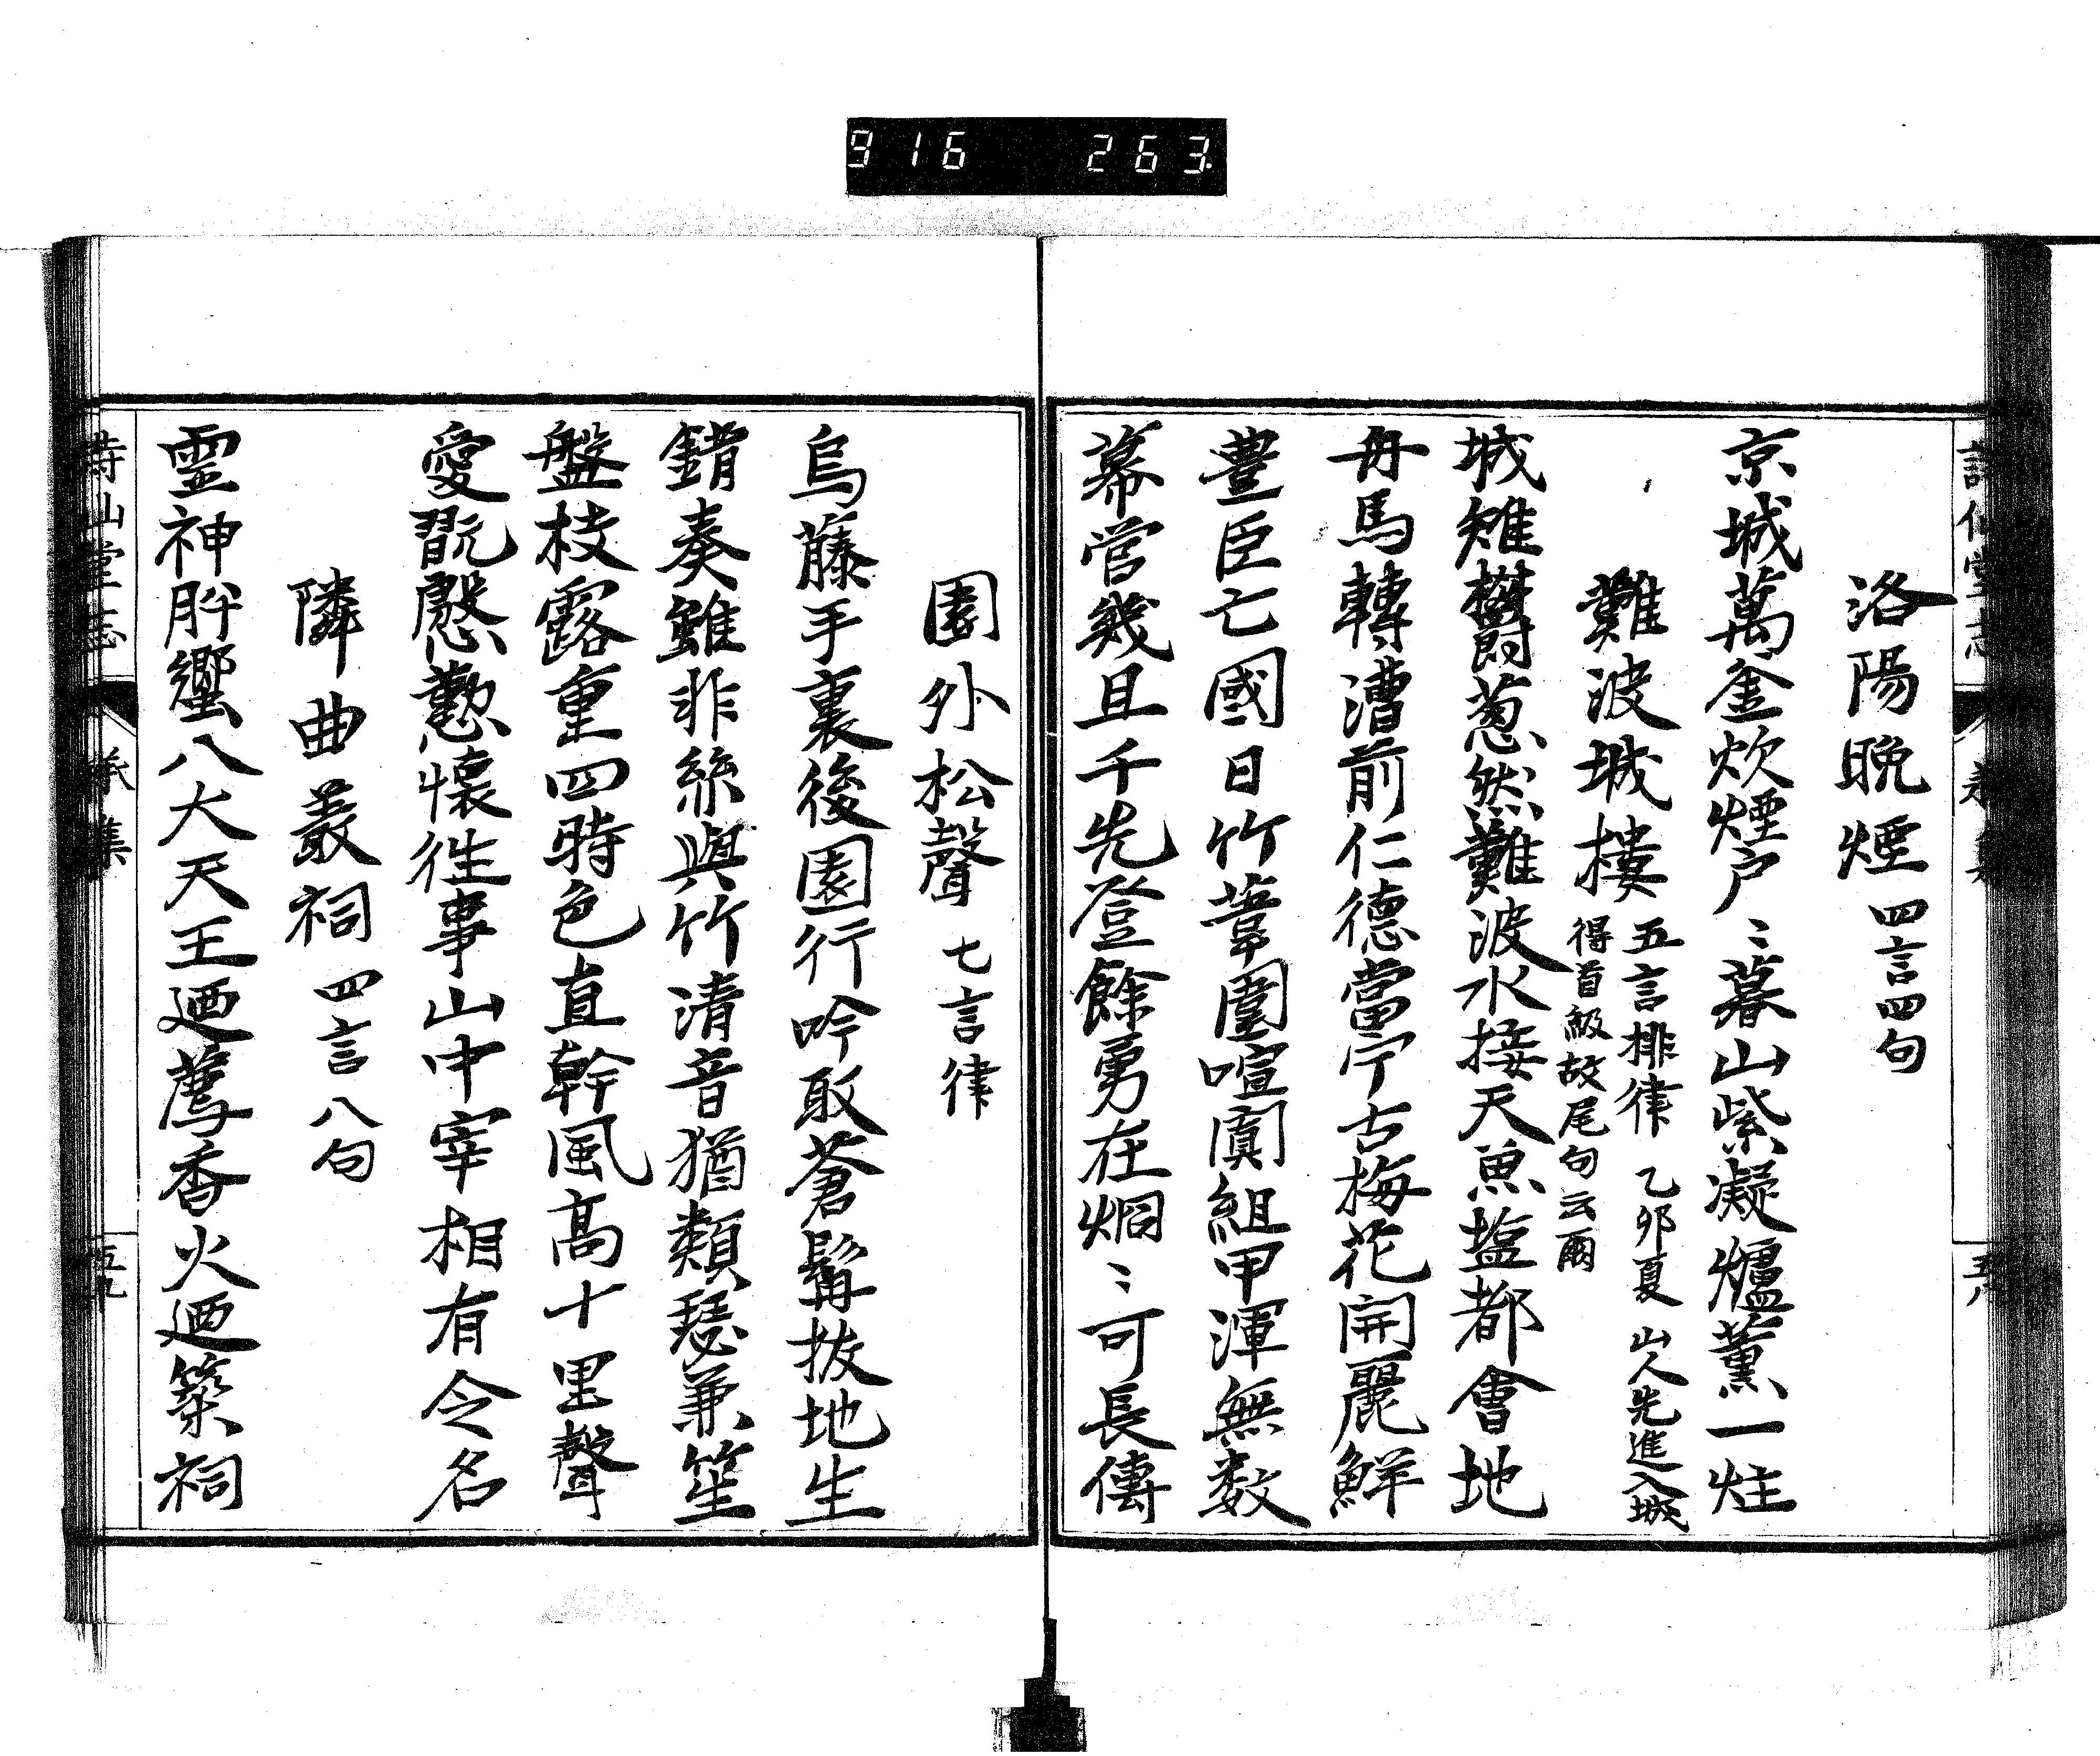 916 263
洛陽晩煙 四言四句
京城萬釜炊煙戸〻暮山紫凝爐薫一炷
難波城樓 五言排律 乙卯夏 山人先進入城
得首級故尾句云爾
城雉欝葱然難波水接天魚塩都會地
舟馬轉漕前仁德當宁古梅花開麗鮮
豊臣亡國日竹葦圍喧闐組甲渾無数
幕営幾且千先登餘勇在烱〻可長傳
園外松聲 七言律
烏藤手裏後園行吟取蒼髯拔地生
錯奏雖非絲與竹清音猶類瑟兼笙
盤枝露重四時色直幹風高十里聲
愛翫慇懃懐徃事山中宰相有令名
隣曲叢祠 四言八句
霊神肸蠁八大天王廼薦香火廼築祠
詩仙堂志
五八
詩仙堂志
五九